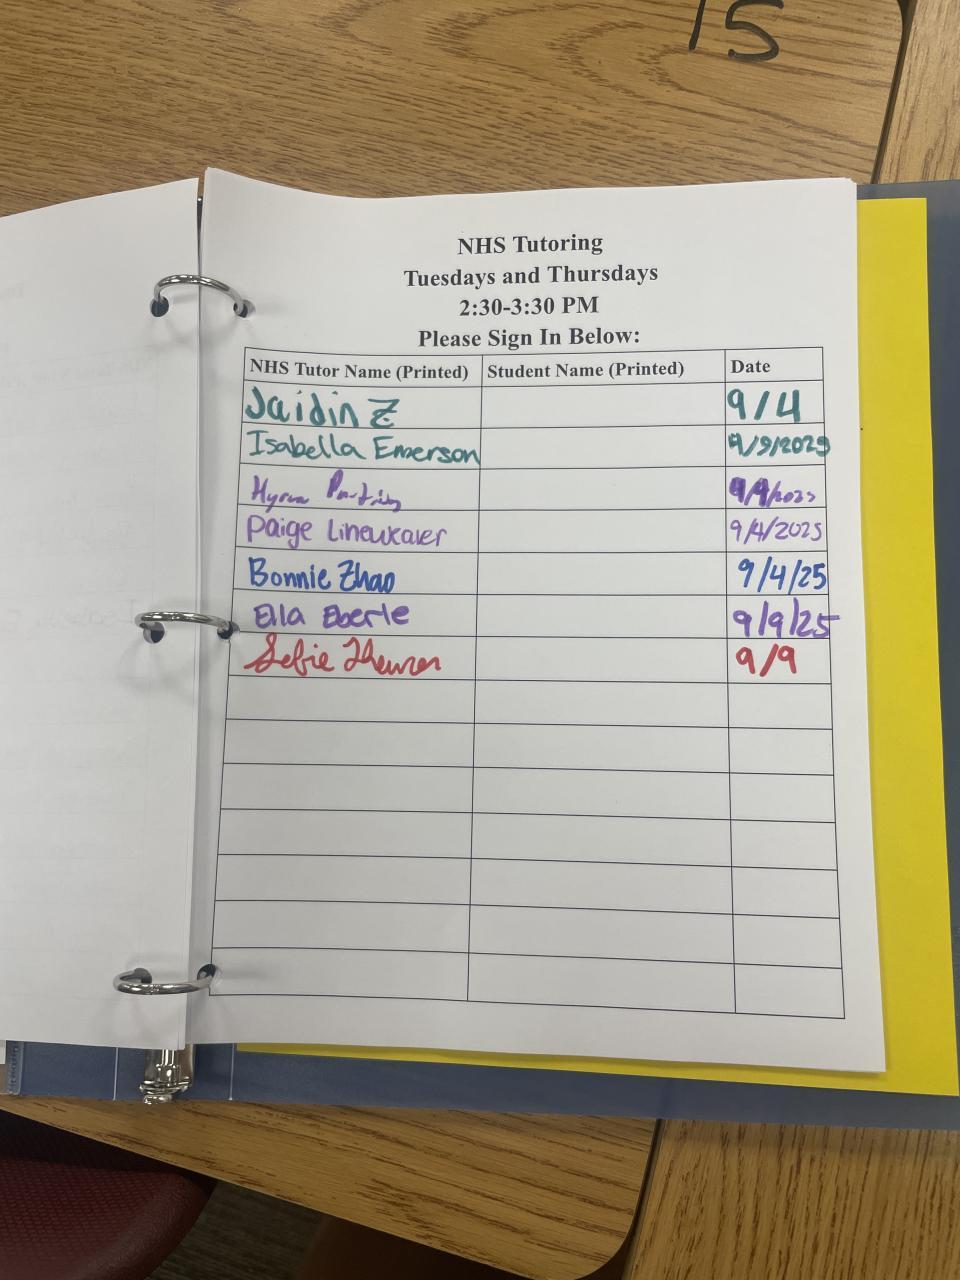 15
NHS Tutoring
Tuesdays and Thursdays
2:30-3:30 PM
Please Sign In Below:
NHS Tutor Name (Printed) Student Name (Printed) Date
Jaidin Z 9/4
Isabella Emerson
Paige Lineweaver 9/4/2025
Bonnie Zhao 9/4/25
Ella Eberle 9/9/25
9/9